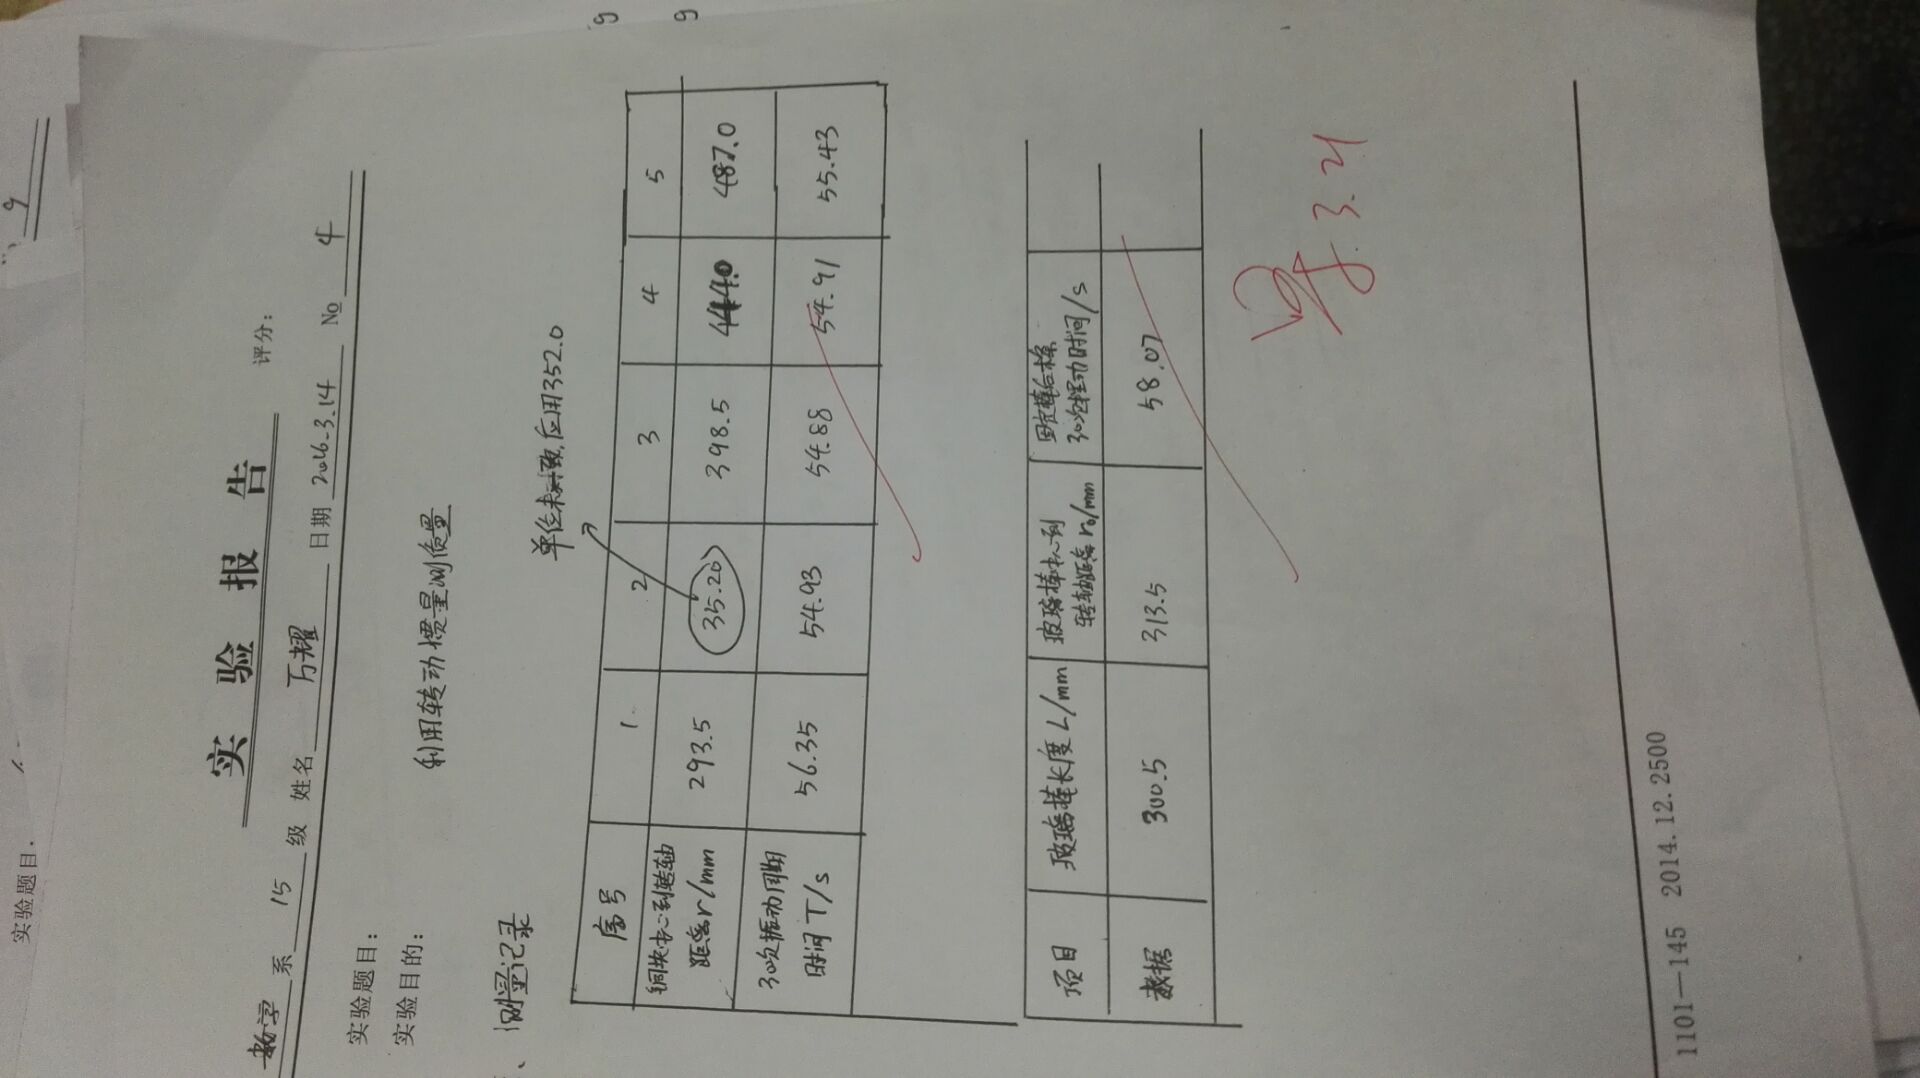 实验报告
评分：
数学 系 15 级 姓名 万耀 日期 2016.3.14 No 4
实验题目：
实验目的：
利用转动惯量测质量
、测量记录
单位未对致,应用352.0
序号 1 2 3 4 5
铜块中心到转轴距离r/mm 293.5 35.20 398.5 444.0 487.0
30次振动周期时间T/s 56.35 54.93 54.88 54.91 55.43
项目 玻璃棒长度L/mm 玻璃棒中心到转轴距离r₀/mm 30次摆动时间/s
数据 300.5 313.5 58.07
3.21
1101—145 2014.12.2500
实验题目.